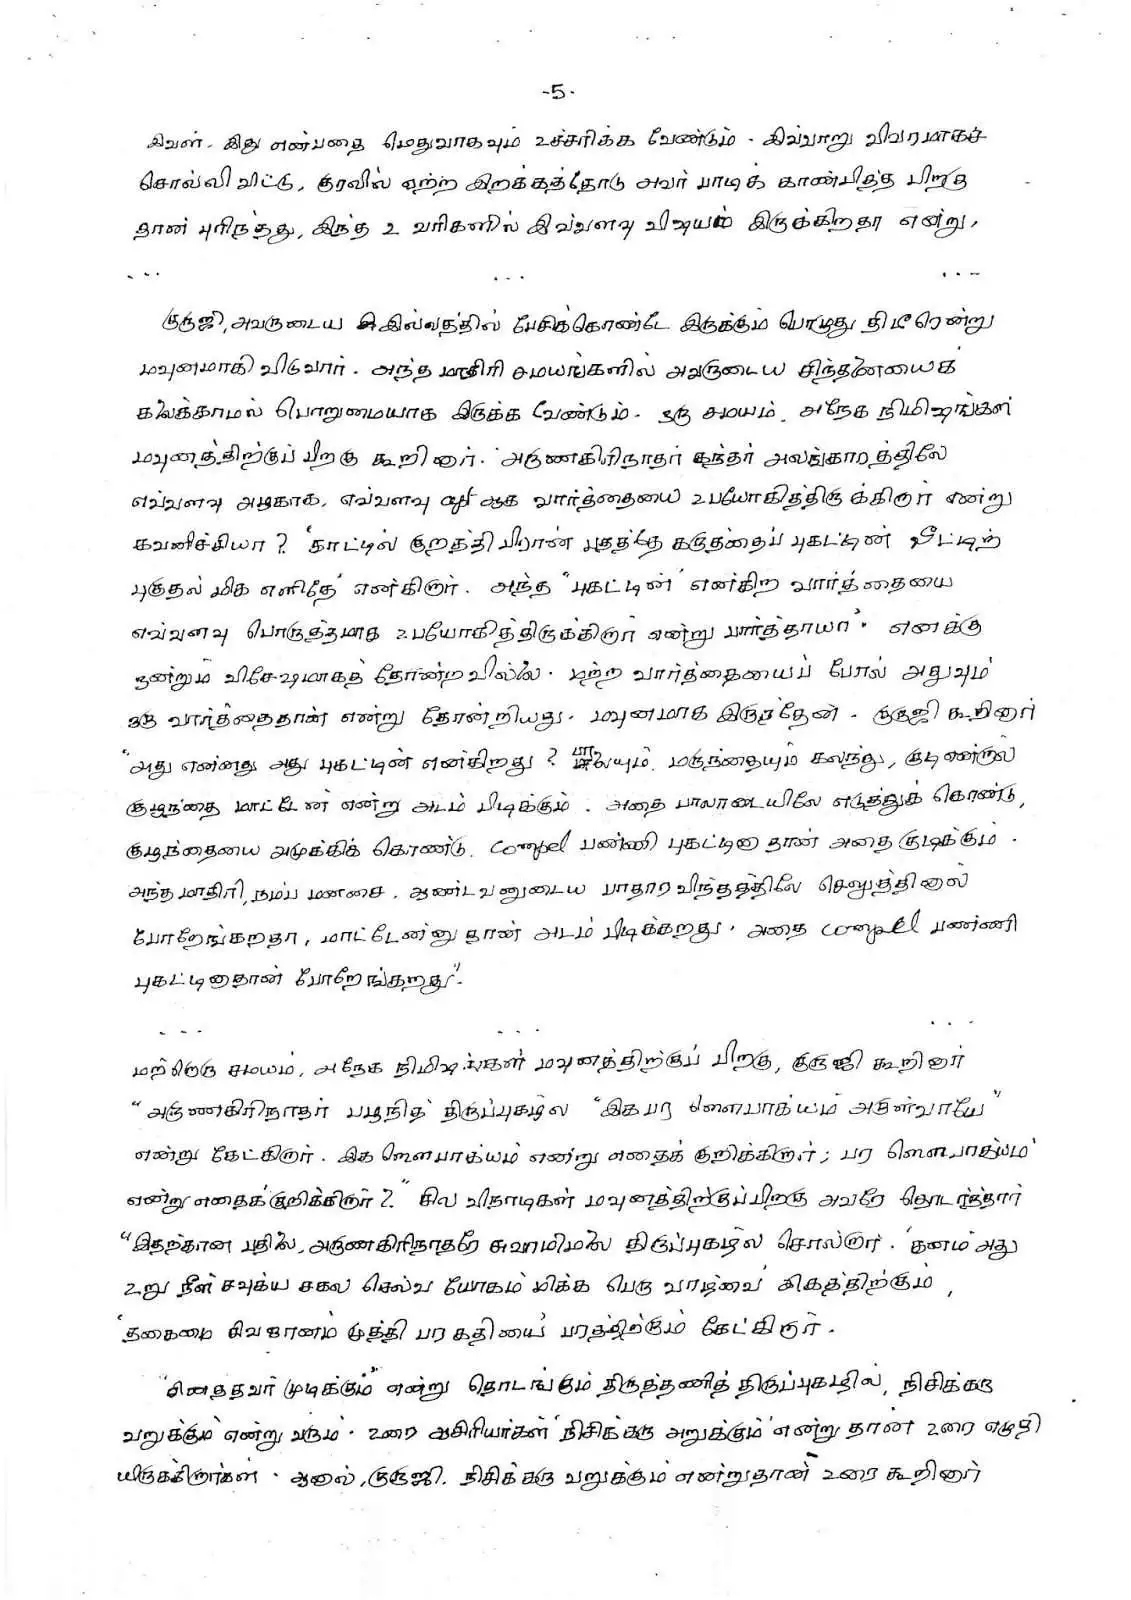 -5-
இவள். இது என்பதை மெதுவாகவும் உச்சரிக்க வேண்டும். இவ்வாறு விவரமாகச்
சொல்லி விட்டு, குரலில் ஏற்ற இறக்கத்தோடு அவர் பாடிக் காண்பித்த பிறகு
தான் புரிந்தது, இந்த 2 வரிகளில் இவ்வளவு விஷயம் இருக்கிறதா என்று,
... ... ...
குருஜி, அவருடைய இல்லத்தில் பேசிக்கொண்டே இருக்கும் பொழுது திடீரென்று
மவுனமாகி விடுவார். அந்த மாதிரி சமயங்களில் அவருடைய சிந்தனையைக்
கலைக்காமல் பொறுமையாக இருக்க வேண்டும். ஒரு சமயம், அநேக நிமிஷங்கள்
மவுனத்திற்குப் பிறகு கூறினார். 'அருணகிரிநாதர் கந்தர் அலங்காரத்திலே
எவ்வளவு அழகாக, எவ்வளவு ஆக வார்த்தையை உபயோகித்திருக்கிறார் என்று
கவனிச்சியா? 'காட்டில் குறத்தி பிரான் பதத்தே கருத்தைப் புகட்டின் வீட்டிற்
புகுதல் மிக எளிதே' என்கிறார். அந்த "புகட்டின்' என்கிற வார்த்தையை
எவ்வளவு பொருத்தமாக உபயோகித்திருக்கிறார் என்று பார்த்தாயா' எனக்கு
ஒன்றும் விசேஷமாகத் தோன்றவில்லை. மற்ற வார்த்தையைப் போல் அதுவும்
ஒரு வார்த்தைதான் என்று தோன்றியது. மவுனமாக இருந்தேன். குருஜி கூறினார்
"அது என்னது அது புகட்டின் என்கிறது? பாலையும், மருந்தையும் கலந்து, குடி என்றால்
குழந்தை மாட்டேன் என்று அடம் பிடிக்கும். அதை பாலாடையிலே எடுத்துக் கொண்டு,
குழந்தையை அமுக்கிக் கொண்டு, compel பண்ணி புகட்டினா தான் அதை குடிக்கும்.
அந்த மாதிரி, நம்ப மனசை, ஆண்டவனுடைய பாதார விந்தத்திலே செலுத்தினால்
போறேங்கறதா, மாட்டேன்னு தான் அடம் பிடிக்கறது. அதை compel பண்ணி
புகட்டினாதான் போறேங்கறது".
... ... ...
மற்றொரு சமயம், அநேக நிமிஷங்கள் மவுனத்திற்குப் பிறகு, குருஜி கூறினார்
"அருணகிரிநாதர் பழநித் திருப்புகழில் "இகபர ஸௌபாக்யம் அருள்வாயே"
என்று கேட்கிறார். இக ஸௌபாக்யம் என்று எதைக் குறிக்கிறார்; பர ஸௌபாக்யம்
என்று எதைக் குறிக்கிறார்?" சில விநாடிகள் மவுனத்திற்குப்பிறகு அவரே தொடர்ந்தார்
"இதற்கான பதிலை, அருணகிரிநாதரே சுவாமிமலை திருப்புகழில் சொல்றார். 'தனம் அது
உறு நீள் சவுக்ய சகல செல்வ யோகம் மிக்க பெரு வாழ்வை' இகத்திற்கும்,
'தகைமை சிவஞானம் முத்தி பர கதியை' பரத்திற்கும் கேட்கிறார்.
'சினத்தவர் முடிக்கும்" என்று தொடங்கும் திருத்தணித் திருப்புகழில், நிசிக்கரு
வறுக்கும் என்று வரும். உரை ஆசிரியர்கள் 'நிசிக்கரு அறுக்கும்' என்று தான் உரை எழுதி
யிருக்கிறார்கள். ஆனால், குருஜி, நிசிக்கரு வறுக்கும் என்றுதான் உரை கூறினார்